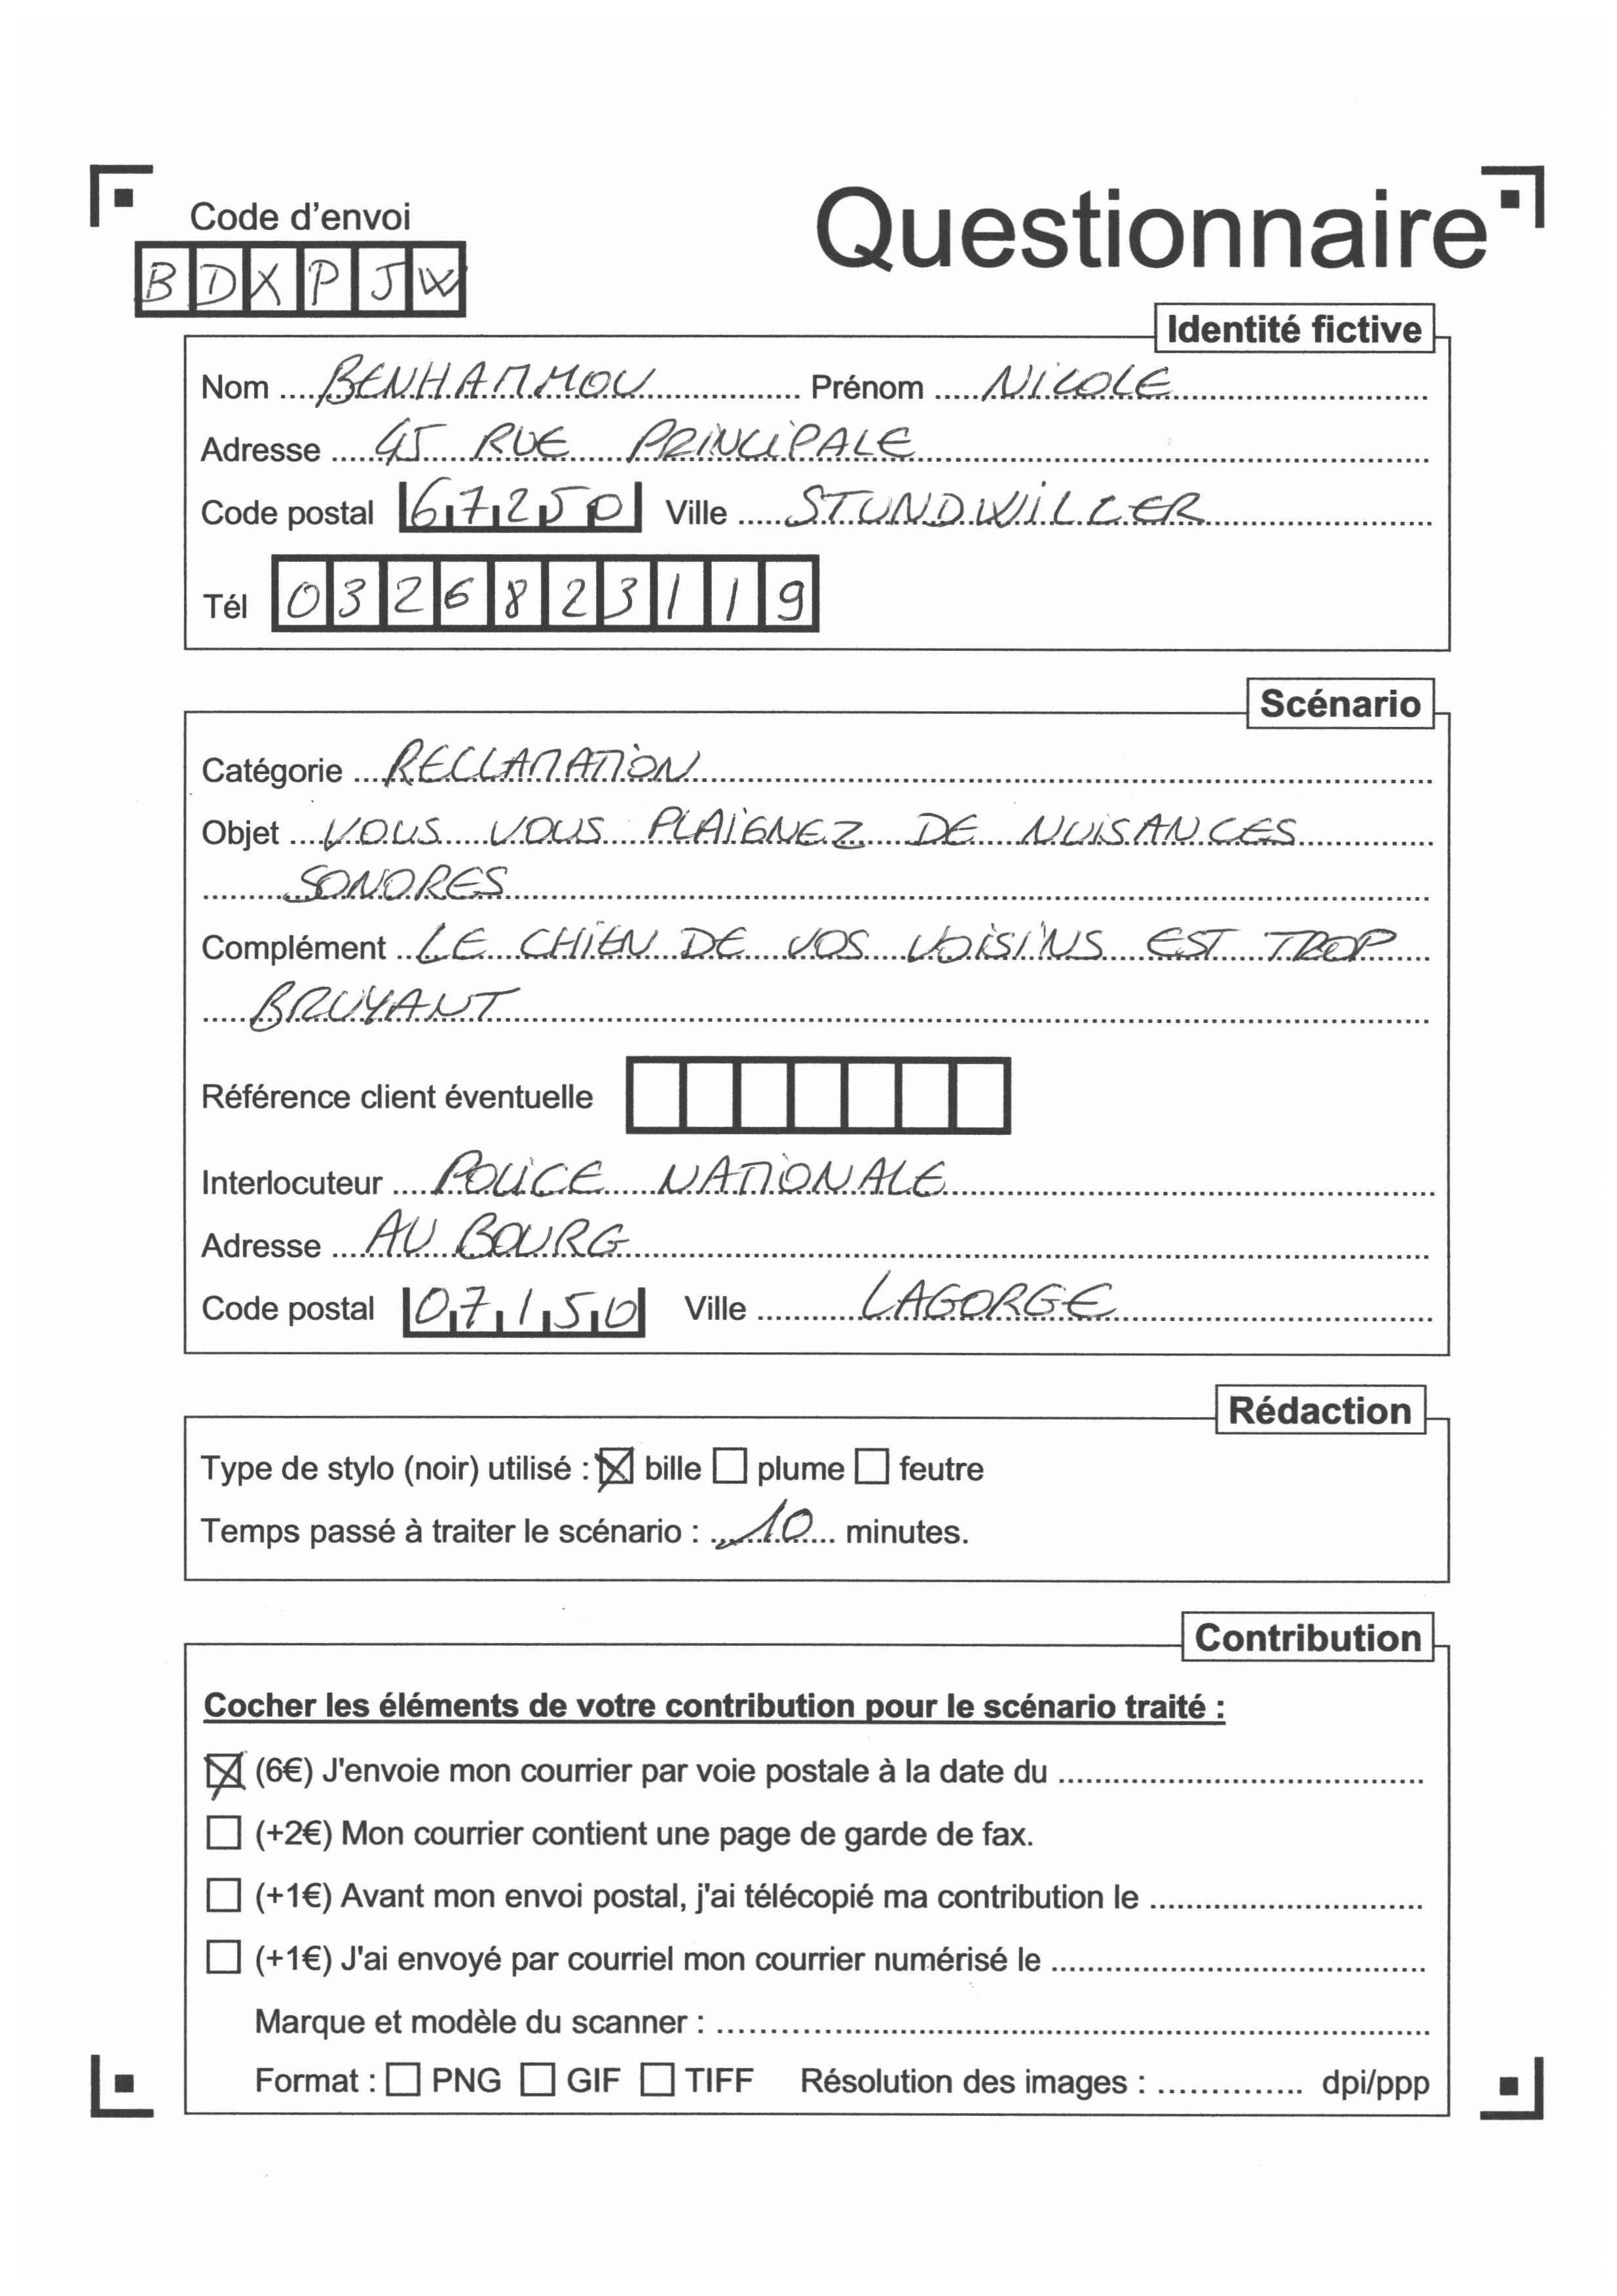 Code d'envoi
Questionnaire
BDXPJW
Identité fictive
Nom BENHAMMOU Prénom NICOLE
Adresse 45 RUE PRINCIPALE
Code postal 67250 Ville STUNDWILLER
Tél 0326823119
Scénario
Catégorie RECLAMATION
Objet VOUS VOUS PLAIGNEZ DE NUISANCES
SONORES
Complément LE CHIEN DE VOS VOISINS EST TROP
BRUYANT
Référence client éventuelle
Interlocuteur POLICE NATIONALE
Adresse AU BOURG
Code postal 07150 Ville LAGORGE
Rédaction
Type de stylo (noir) utilisé : ☒ bille ☐ plume ☐ feutre
Temps passé à traiter le scénario : 10 minutes.
Contribution
Cocher les éléments de votre contribution pour le scénario traité :
☒ (6€) J'envoie mon courrier par voie postale à la date du
☐ (+2€) Mon courrier contient une page de garde de fax.
☐ (+1€) Avant mon envoi postal, j'ai télécopié ma contribution le
☐ (+1€) J'ai envoyé par courriel mon courrier numérisé le
Marque et modèle du scanner :
Format : ☐ PNG ☐ GIF ☐ TIFF Résolution des images : dpi/ppp